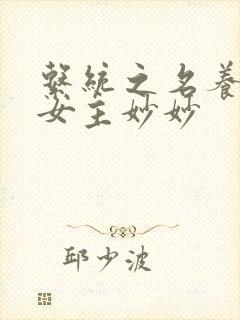 繫統之名養
女主妙妙
邱少波